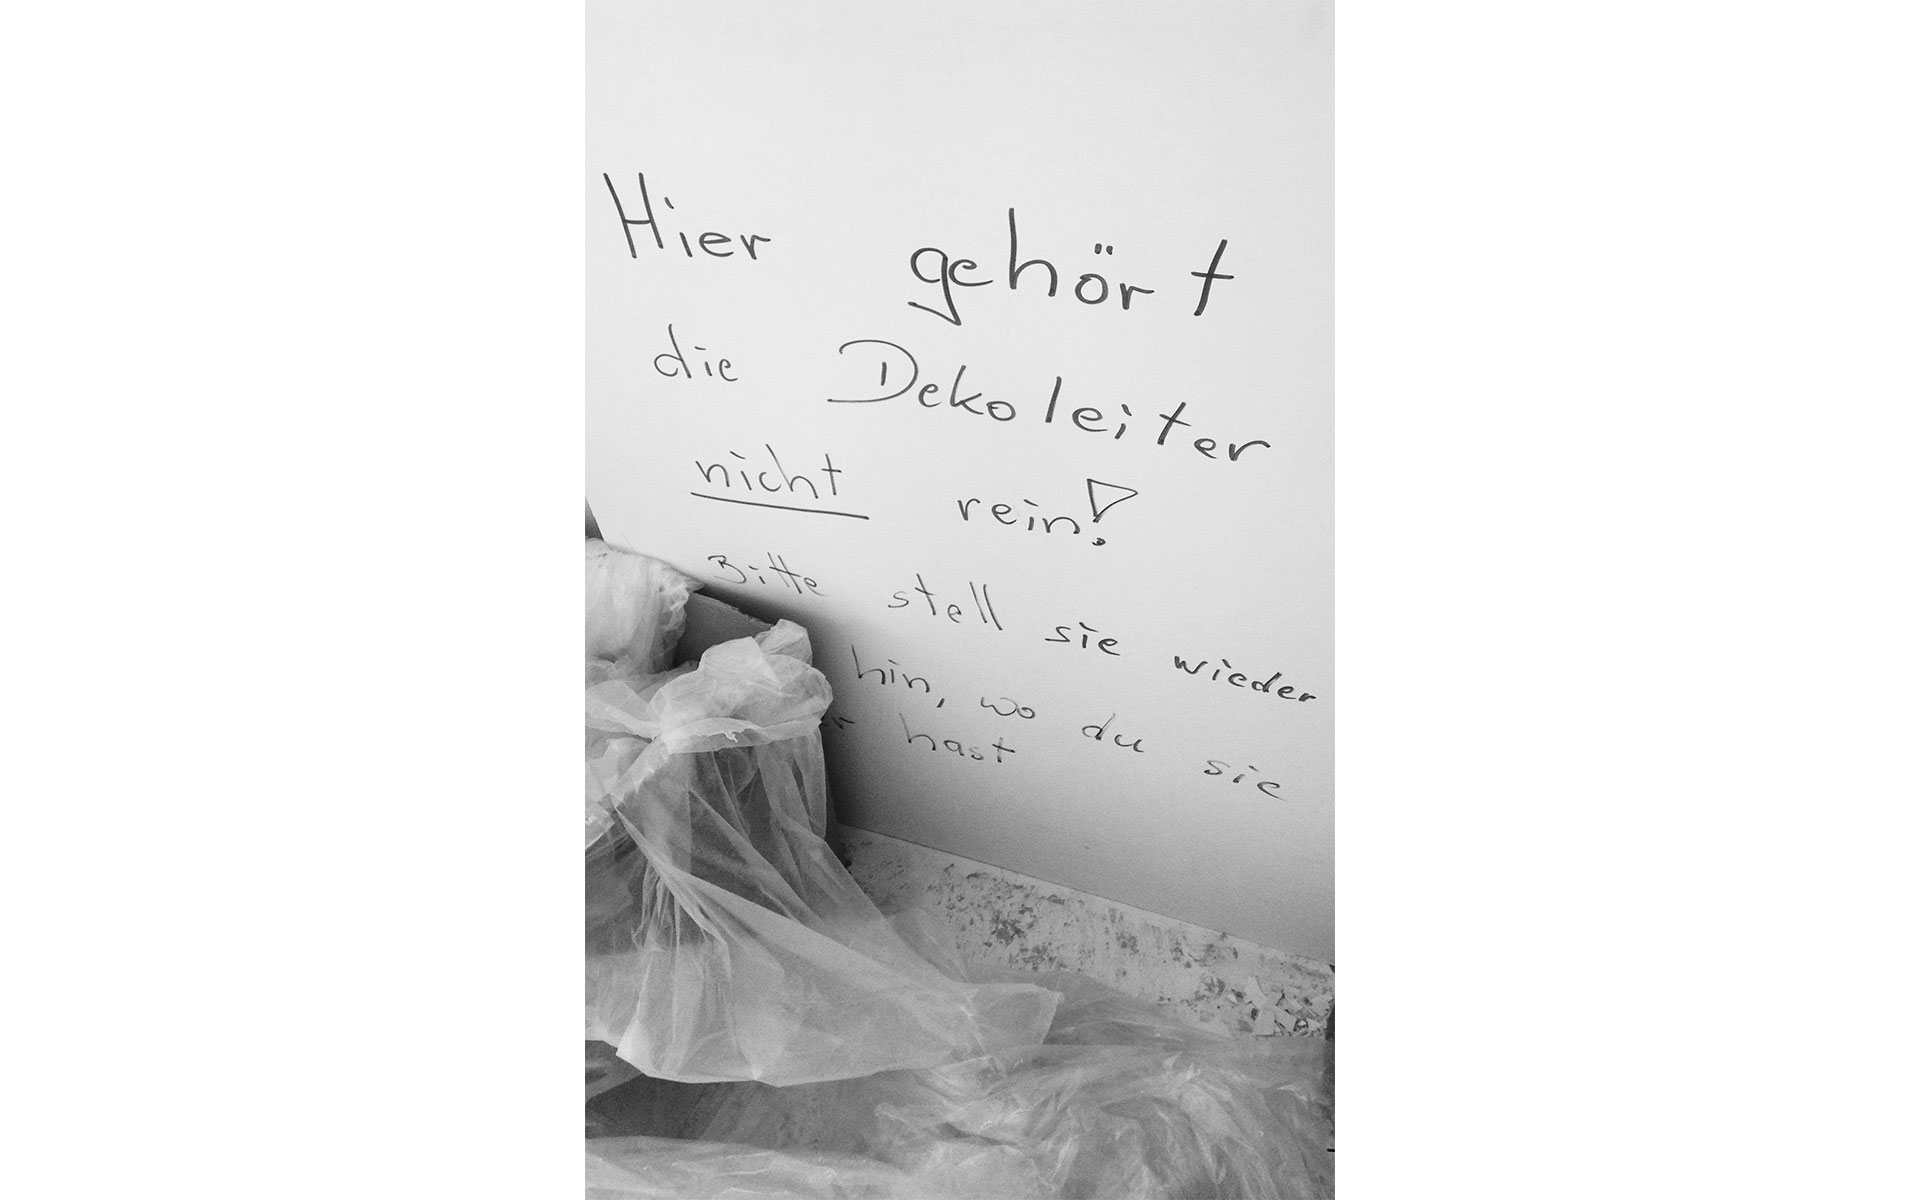 Hier gehört
die Dekoleiter
nicht rein!
Bitte stell sie wieder
hin, wo du sie
hast